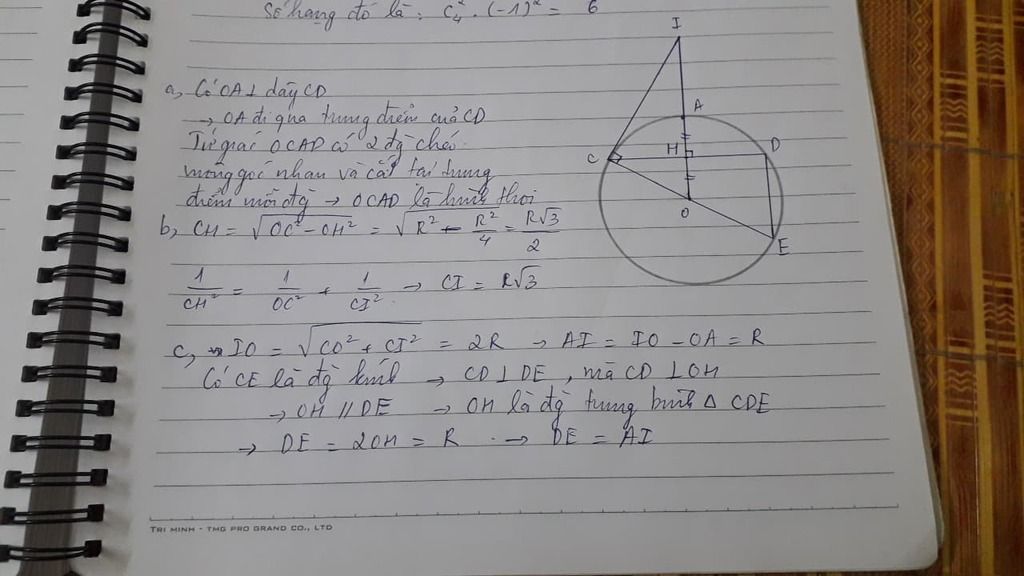 Số hạng đó là: C₄² . (-1)² = 6
a, Có OA ⊥ dây CD
→ OA đi qua trung điểm của CD
Tứ giác OCAD có 2 đg chéo
vuông góc nhau và cắt tại trung
điểm mỗi đg → OCAD là hình thoi
b, CH = √(OC² - OH²) = √(R² - R²/4) = R√3/2
1/CH² = 1/OC² + 1/CI² → CI = R√3
c, IO = √(CO² + CI²) = 2R → AI = IO - OA = R
Có CE là đg kính → CD ⊥ DE, mà CD ⊥ OH
→ OH // DE → OH là đg trung bình Δ CDE
→ DE = 2OH = R → DE = AI
I
A
C
H
D
O
E
TRI MINH - TMG PRO GRAND CO., LTD